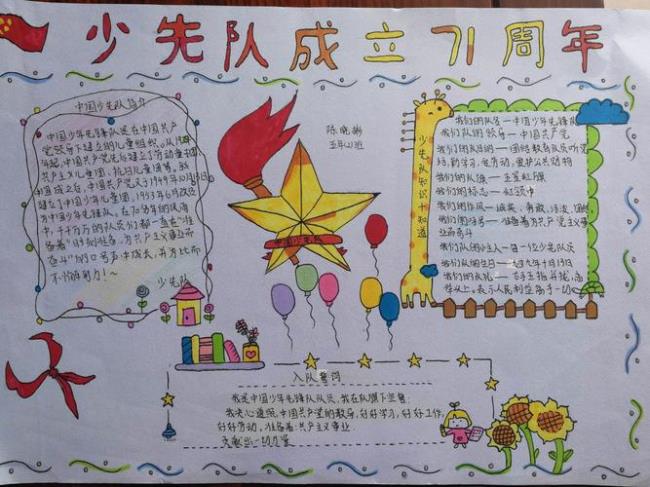 少先队成立71周年
中国少先队简介
中国少年先锋队是在中国共产
党领导下建立的儿童组织。从1924
年起,中国共产党先后建立了劳动童子团、
共产主义儿童团、抗日儿童团等。新
中国成立后,中国共产党又于1949年10月13日
建立了中国少年儿童队,1953年6月改名
为中国少年先锋队,在70多年的
中,千千万万的队员们都一直在"准
备着"时刻准备,为共产主义事业而
奋斗"的口号声中成长,并为此而
不懈努力!~
少先队
陈晓彬
五年(1)班
中国少先队
少先队知识十知道
我们的队名一中国少年先锋队
我们队的领导一中国共产党
我们的目的一团结教育队员听党
话,爱学习,爱劳动,爱护公共财物
我们的队旗一五星红旗
我们的标志一红领巾
我们的作风一诚实、勇敢、活泼、团结
我们的呼号一准备着为共产主义事
业而奋斗
我们队的主人一每一位少先队员
我们队的生日一一九四九年十月十三日
我们的队礼一右手五指并拢,高
举头上。表示人民利益高于一切
入队誓词
我是中国少年先锋队队员,我在队旗下宣誓:
我决心遵照中国共产党的教导,好好学习,好好工作,
好好劳动,准备着:为共产主义事业
贡献出一切力量